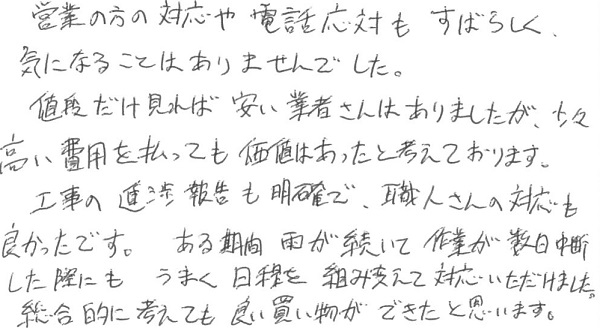 営業の方の対応や電話応対もすばらしく、
気になることはありませんでした。
値段だけ見れば安い業者さんはありましたが、少々
高い費用を払っても価値はあったと考えております。
工事の進渉報告も明確で、職人さんの対応も
良かったです。ある期間雨が続いて作業が数日中断
した際にもうまく日程を組み変えて対応いただけました。
総合的に考えても良い買い物ができたと思います。